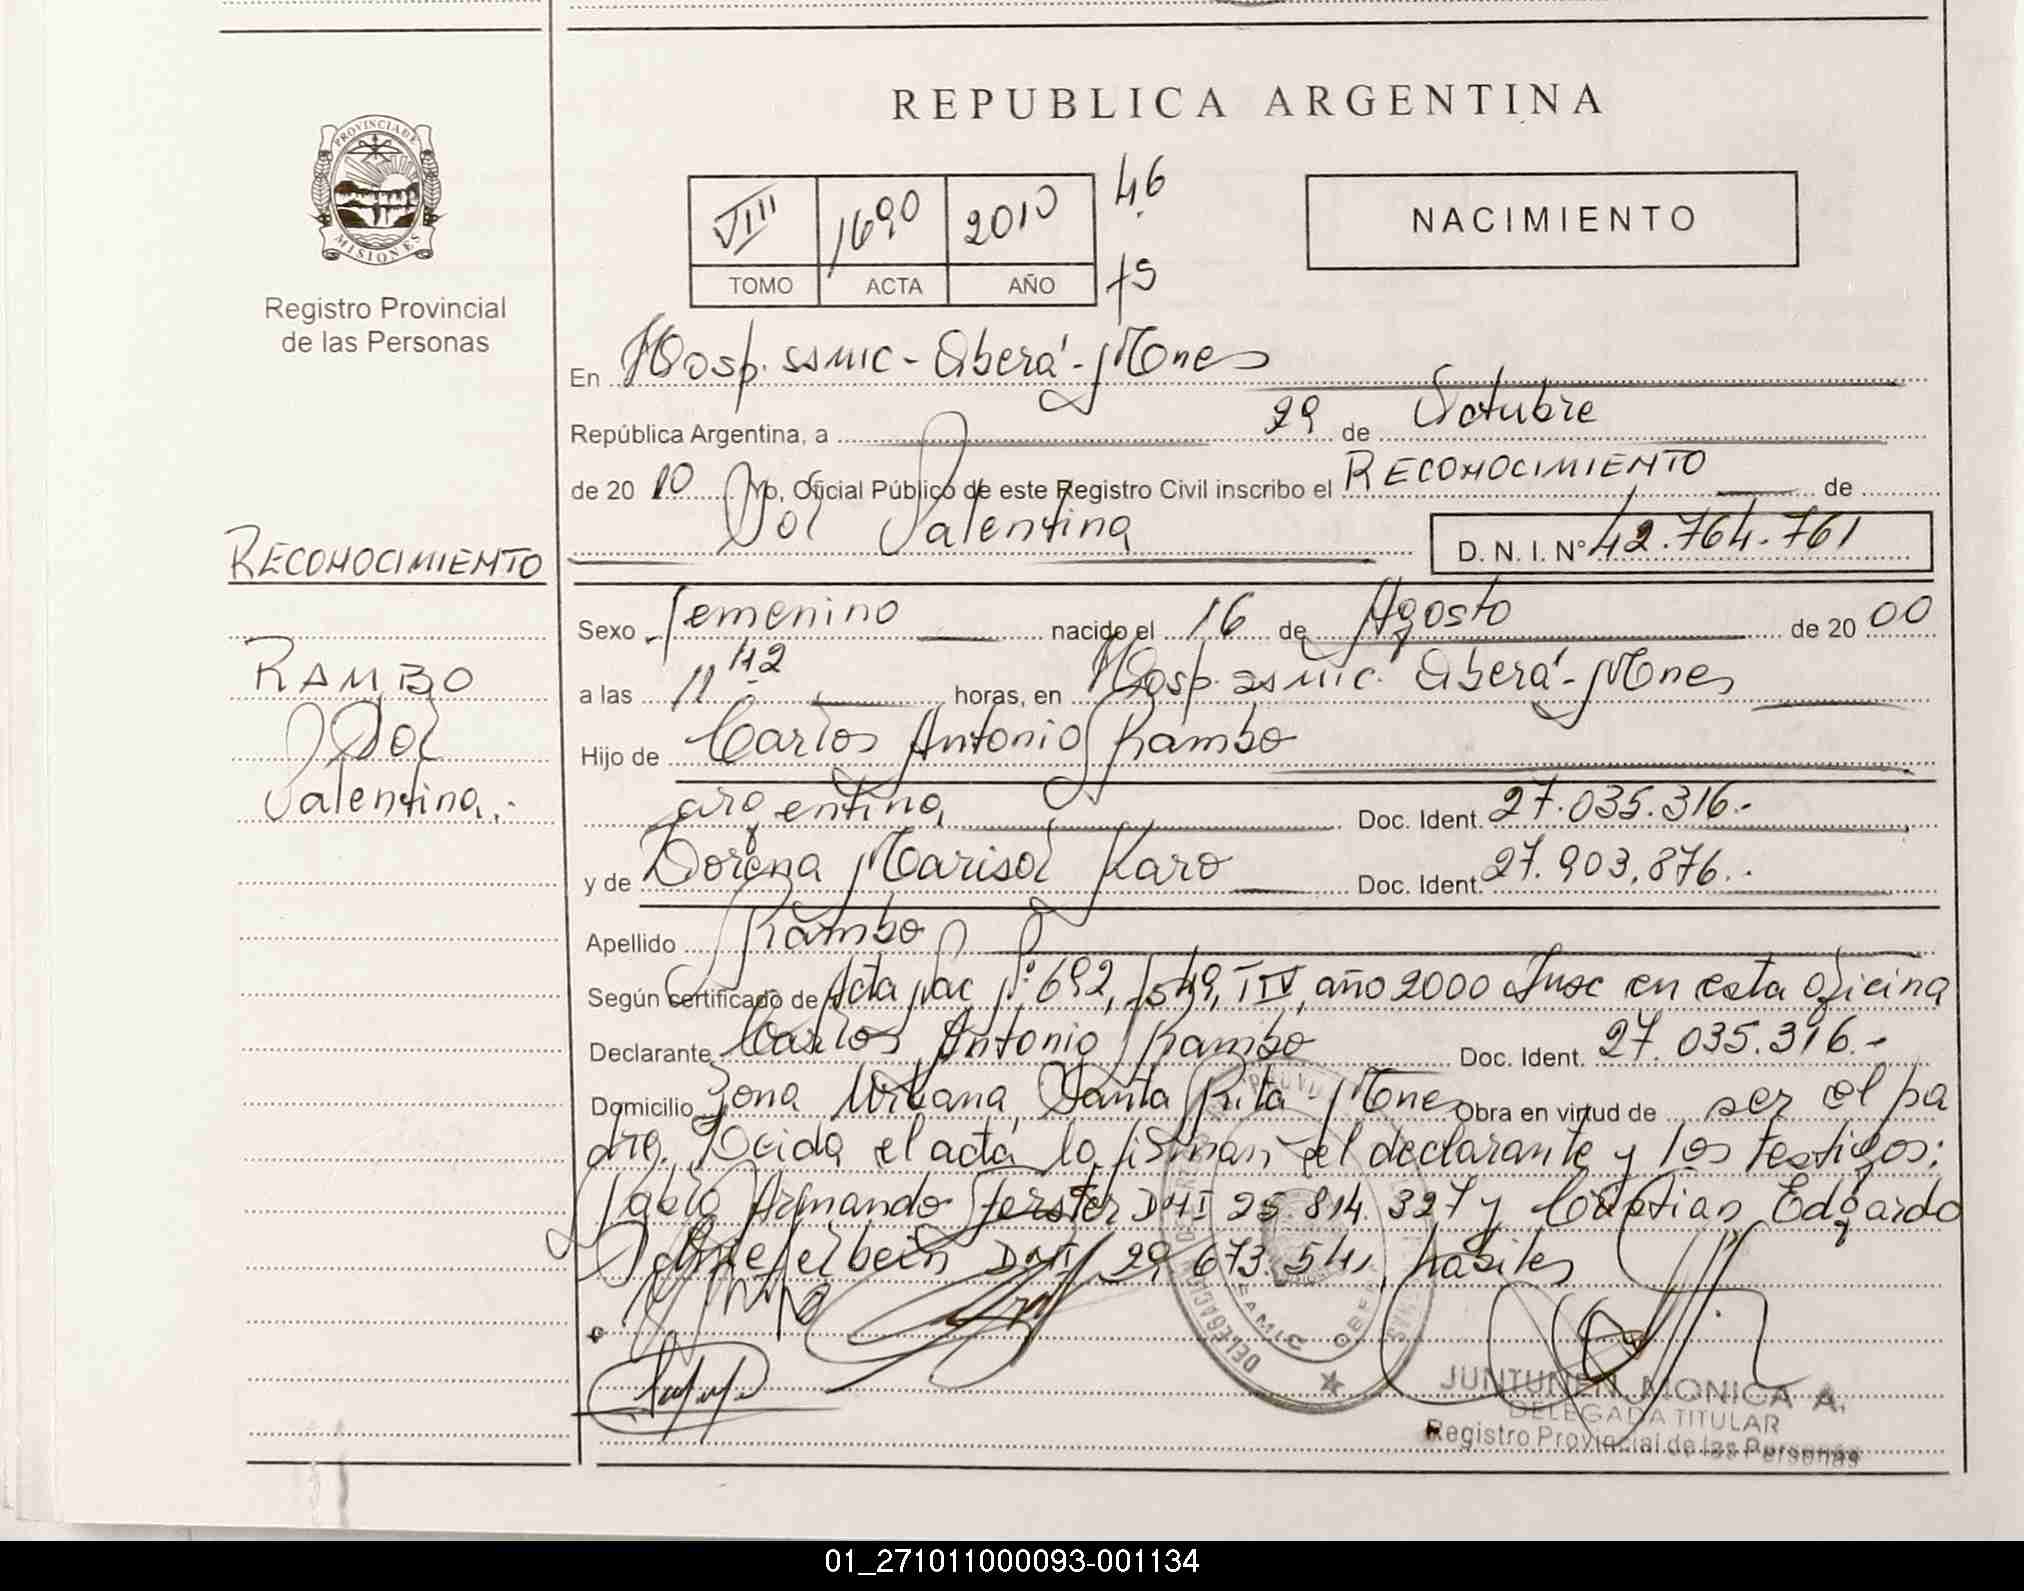 REPUBLICA ARGENTINA
PROVINCIA DE
MISIONES
Registro Provincial
de las Personas
VIII 1690 2010 46
TOMO ACTA AÑO 75
NACIMIENTO
En Hosp. SAMIC - Oberá - Mnes
República Argentina, a 29 de Octubre
de 20 10 Yo, Oficial Público de este Registro Civil inscribo el RECONOCIMIENTO de
Sol Valentina D. N. I. Nº 42.764.761
RECONOCIMIENTO
RAMBO
Sol
Valentina.-
Sexo Femenino nacido el 16 de Agosto de 20 00
a las 11 42 horas, en Hosp. SAMIC. Oberá - Mnes
Hijo de Carlos Antonio Rambo
argentina Doc. Ident. 27.035.316.-
y de Lorena Marisol Karo Doc. Ident. 27.903.876.-
Apellido Rambo
Según certificado de Acta Nac Nº: 692, Fº 49, T IV, año 2000 Insc en esta oficina
Declarante Carlos Antonio Rambo Doc. Ident. 27.035.316.-
Domicilio Zona Urbana, Santa Rita - Mnes Obra en virtud de ser el pa
dre. Leida el acta la firman, el declarante y los testigos:
Armando DNI 25.814.327 y Cristian Edgardo
DNI 29.673.541, habiles
SAMIC OBERA
JUNTUNEN, MONICA A.
DELEGADA TITULAR
Registro Provincial de las Personas
01_271011000093-001134